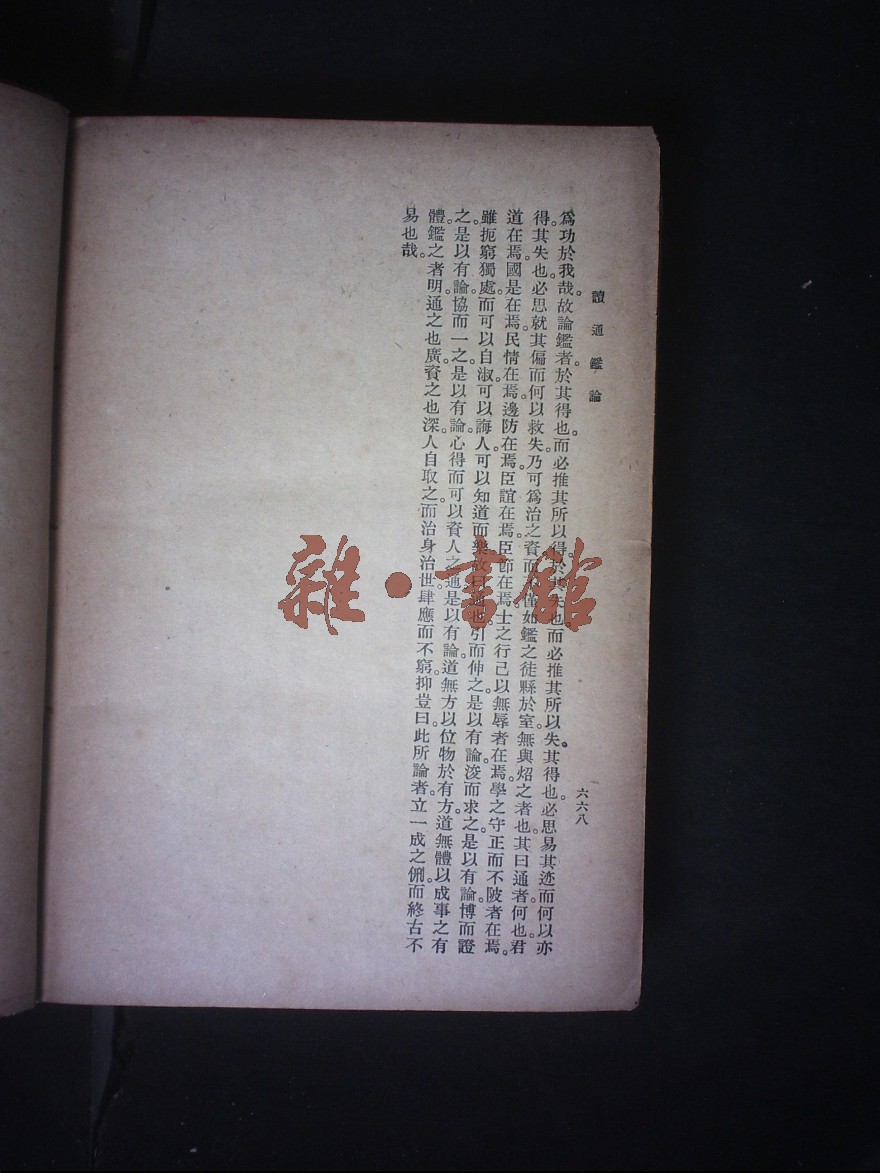 讀通鑑論
六六八
爲功於我哉。故論鑑者。於其得也。而必推其所以得。於其失也。而必推其所以失。其得也。必思易其迹而何以亦
得。其失也。必思就其偏而何以救失。乃可爲治之資。而不僅如鑑之徒縣於室。無與炤之者也。其曰通者。何也。君
道在焉。國是在焉。民情在焉。邊防在焉。臣誼在焉。臣節在焉。士之行己以無辱者在焉。學之守正而不陂者在焉。
雖扼窮獨處。而可以自淑。可以誨人。可以知道而樂。故曰通也。引而伸之。是以有論。浚而求之。是以有論。博而證
之。是以有論。協而一之。是以有論。心得而可以資人之通。是以有論。道無方。以位物於有方。道無體。以成事之有
體。鑑之者明。通之也廣。資之也深。人自取之。而治身治世。肆應而不窮。抑豈曰此所論者。立一成之侀。而終古不
易也哉。
雜·書館